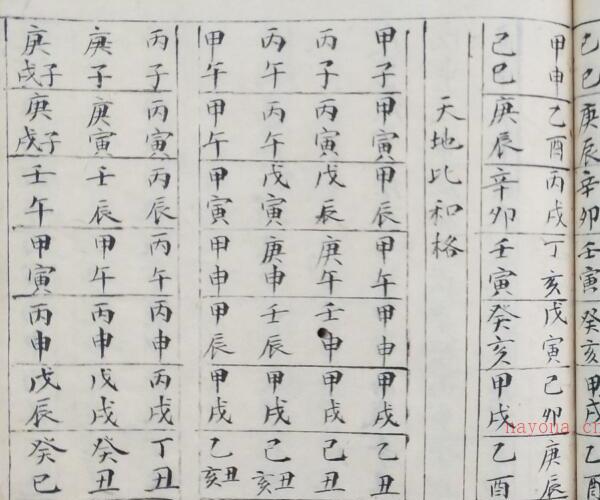 己巳 庚辰 辛卯 壬寅 癸亥 甲戌 乙酉
甲申 乙酉 丙戌 丁亥 戊寅 己卯 庚辰
己巳 庚辰 辛卯 壬寅 癸亥 甲戌 乙酉
天地比和格
甲子 甲寅 甲辰 甲午 甲申 甲戌 乙丑
丙子 丙寅 戊辰 庚午 壬申 甲戌 己丑
丙午 丙午 戊寅 庚申 壬辰 甲戌 己丑亥
甲午 甲午 甲寅 甲申 甲辰 甲戌 乙丑亥
丙子 丙寅 丙辰 丙午 丙申 丙戌 丁丑
庚子 庚寅 壬辰 甲午 丙申 戊戌 癸丑
庚子戌 庚子戌 壬午 甲寅 丙申 戊辰 癸巳